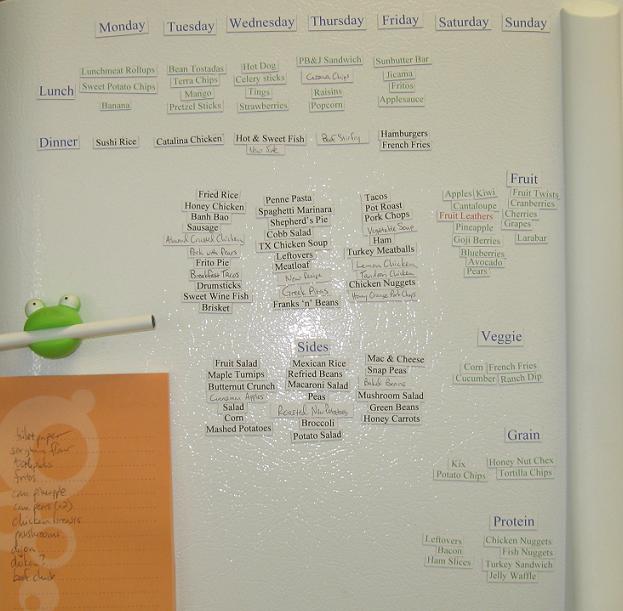 Monday Tuesday Wednesday Thursday Friday Saturday Sunday
Lunch
Lunchmeat Rollups
Sweet Potato Chips
Banana
Bean Tostadas
Terra Chips
Mango
Pretzel Sticks
Hot Dog
Celery sticks
Tings
Strawberries
PB&J Sandwich
Cassava Chips
Raisins
Popcorn
Sunbutter Bar
Jicama
Fritos
Applesauce
Dinner
Sushi Rice
Catalina Chicken
Hot & Sweet Fish
New Side
Beef Stirfry
Hamburgers
French Fries
Fried Rice
Honey Chicken
Banh Bao
Sausage
Almond Crusted Chicken
Pork with Pears
Frito Pie
Breakfast Tacos
Drumsticks
Sweet Wine Fish
Brisket
Penne Pasta
Spaghetti Marinara
Shepherd's Pie
Cobb Salad
TX Chicken Soup
Leftovers
Meatloaf
New Recipe
Greek Pitas
Franks 'n' Beans
Tacos
Pot Roast
Pork Chops
Vegetable Soup
Ham
Turkey Meatballs
Lemon Chicken
Tandoori Chicken
Chicken Nuggets
Honey Orange Pork Chops
Fruit
Apples Kiwi
Cantaloupe
Fruit Leathers
Pineapple
Goji Berries
Blueberries
Avocado
Pears
Fruit Twists
Cranberries
Cherries
Grapes
Larabar
Sides
Fruit Salad
Maple Turnips
Butternut Crunch
Cinnamon Apples
Salad
Corn
Mashed Potatoes
Mexican Rice
Refried Beans
Macaroni Salad
Peas
Roasted New Potatoes
Broccoli
Potato Salad
Mac & Cheese
Snap Peas
Baked Beans
Mushroom Salad
Green Beans
Honey Carrots
Veggie
Corn French Fries
Cucumber Ranch Dip
Grain
Kix Honey Nut Chex
Potato Chips Tortilla Chips
Protein
Leftovers
Bacon
Ham Slices
Chicken Nuggets
Fish Nuggets
Turkey Sandwich
Jelly Waffle
toilet paper
sorghum flour
fritos
can pineapple
can pears (x2)
chicken breasts
mushrooms
dijon